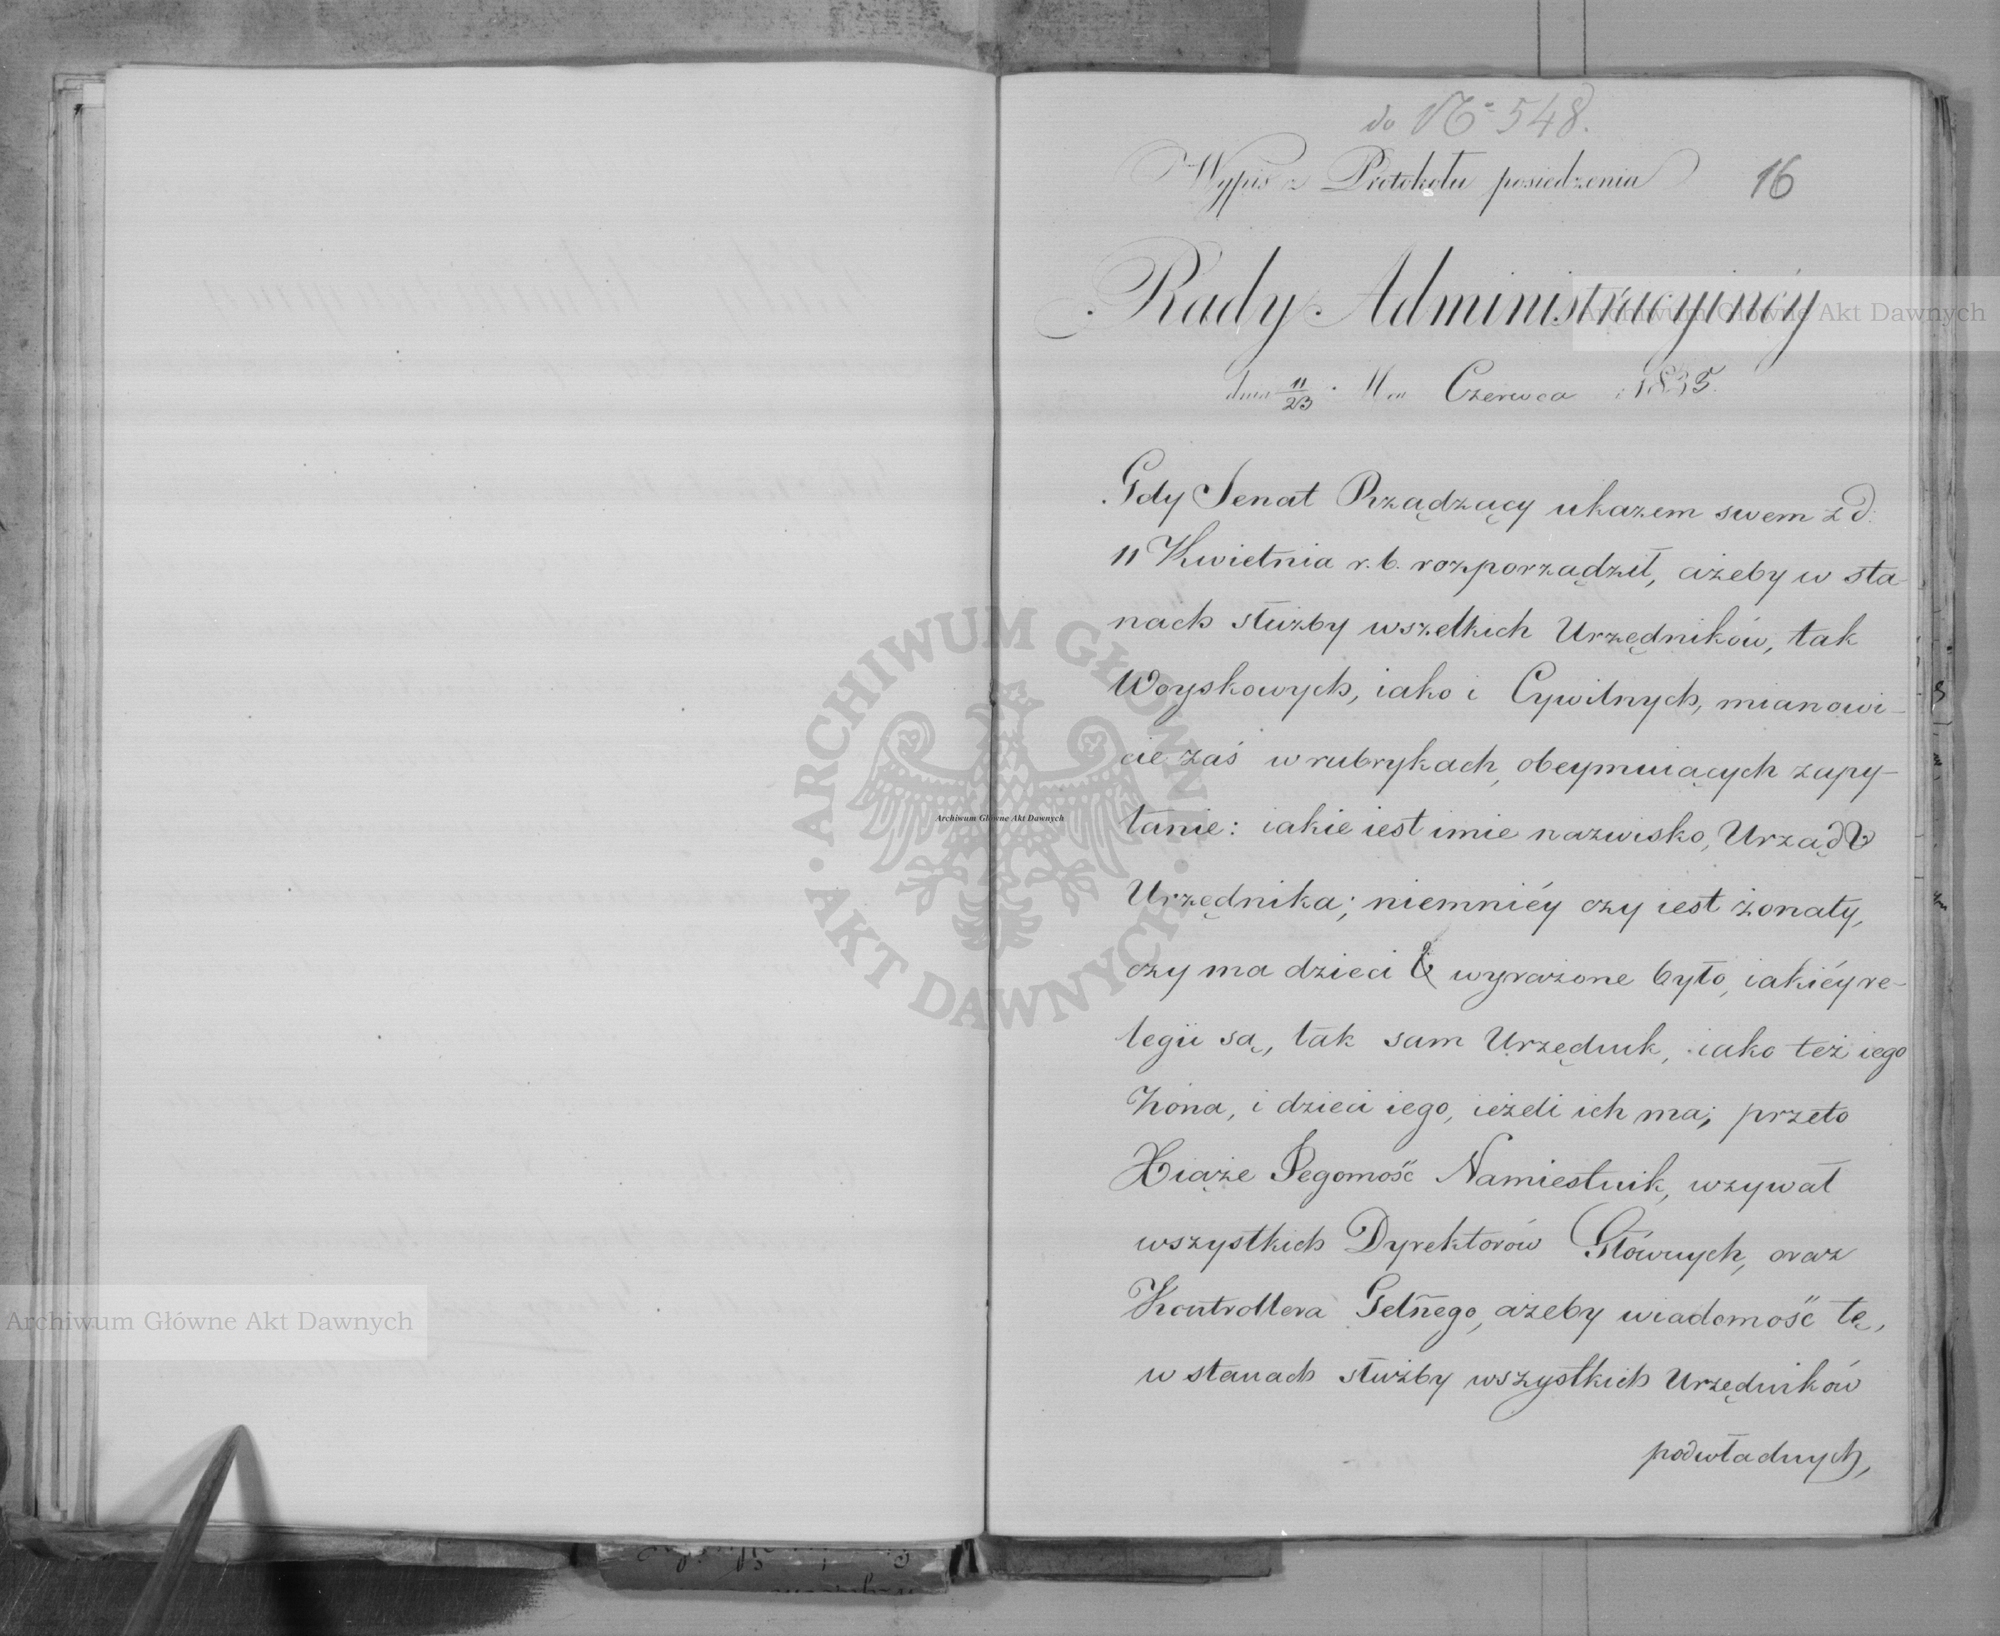 do No 548.
Wypis z Protokołu posiedzenia
16
Rady Administracyinéy
dnia 11/23 Czerwca 1835.
Gdy Senat Rządzący ukazem swem z d:
11 Kwietnia r. b. rozporządził, ażeby w sta-
nach służby wszelkich Urzędników, tak
Woyskowych, iako i Cywilnych, mianowi-
cie zaś w rubrykach, obeymuiących zapy-
tanie: iakie iest imie nazwisko, Urząd
Urzędnika; niemniéy czy iest żonaty,
czy ma dzieci & wyrażone było, iakiéy re-
legii są, tak sam Urzędnik, iako też iego
Żona, i dzieci iego, ieżeli ich ma; przeto
Xiąże Jegomość Namiestnik, wzywał
wszystkich Dyrektorów Głównych, oraz
Kontrollera Gelñego, ażeby wiadomość tę,
w stanach służby wszystkich Urzędników
podwładnych,
Archiwum Główne Akt Dawnych
ARCHIWUM GŁÓWNE AKT DAWNYCH
Archiwum Główne Akt Dawnych
Archiwum Główne Akt Dawnych